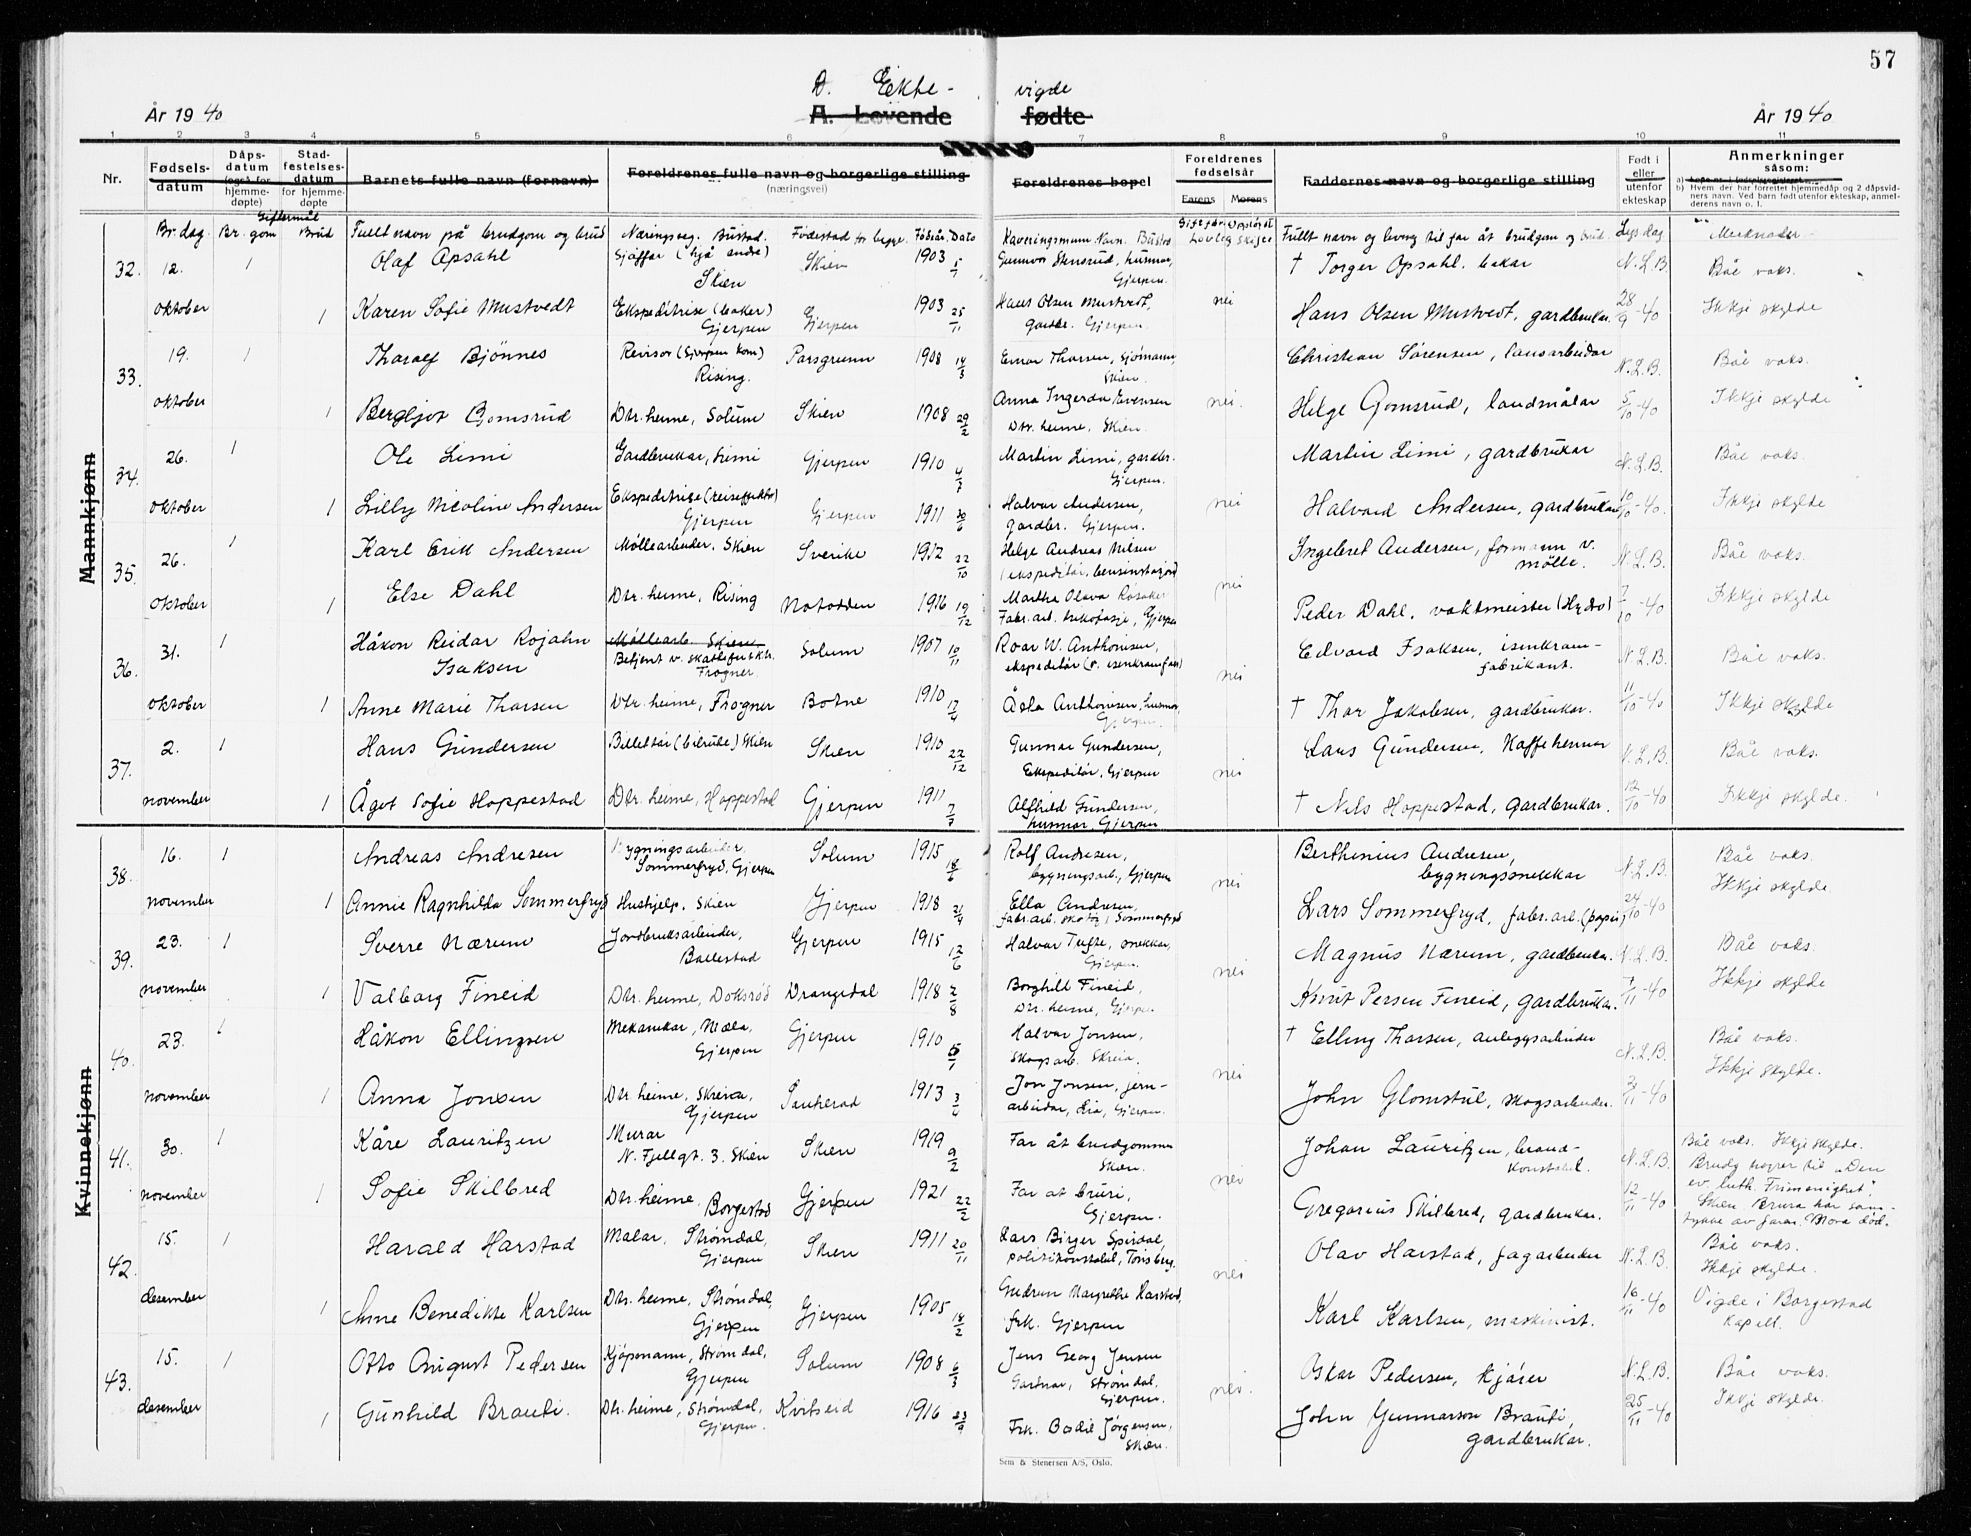 57
D. Ekte- vigde
År 1940 A. Levende fødte År 1940
1 2 3 4 5 6 7 8 9 10 11
Nr. Fødselsdatum Dåpsdatum (også for hjemmedøpte) Stadfestelsesdatum for hjemmedøpte Barnets fulle navn (fornavn) Foreldrenes fulle navn og borgerlige stilling (næringsvei) Foreldrenes bopel Foreldrenes fødselsår Farens Morens Faddernes navn og borgerlige stilling Født i eller utenfor ekteskap Anmerkninger såsom:
b) Hvem der har forrettet hjemmedåp og 2 dåpsvidners navn. Ved barn født utenfor ekteskap, anmelderens navn o. l.
Giftermål
Br.dag Br.gom Brud Fullt navn på brudgom og brud Næringsveg. Bustad. Fødestad for begge. Fødsår. Dato Fullt navn og leveveg til far åt brudgom og brud Lysdag Merknader
Mannkjønn
32. 12. 1 Olaf Opsahl Sjåffør (hjå andre) Skien Skien 1903 5/1 Gunnvor Stensrud, husmor, Gjerpen. † Torger Opsahl, bakar N.L.B. Båe vaks.
oktober 1 Karen Sofie Mustvedt Ekspeditrise (baker) Gjerpen Gjerpen 1903 25/11 Hans Olsen Mustvedt, gardbr. Gjerpen. nei Hans Olsen Mustvedt, gardbrukar. 28/9-40 Ikkje skylde
33. 19. 1 Thoralf Bjönnes Revisor (Gjerpen kom) Rising. Porsgrunn 1908 14/3 Einar Thorsen, sjömann, Skien. Christian Sörensen, lausarbeidar N.L.B. Båe vaks.
oktober 1 Bergljot Gomsrud Dtr. heime, Solum Skien 1908 29/2 Anna Ingerda Evensen Dtr. heime, Skien. nei. Helge Gomsrud, landmålar 5/10-40 Ikkje skylde
34. 26. 1 Ole Limi Gardbrukar, Limi Gjerpen 1910 4/7 Martin Limi, gardbr. Gjerpen. Martin Limi, gardbrukar N.L.B. Båe vaks.
oktober 1 Lilly Nicoline Andersen Ekspeditrise (reiseffektar) Gjerpen Gjerpen 1911 30/6 Halvor Andersen, gardbr. Gjerpen. nei Halvard Andersen, gardbrukar 10/10-40. Ikkje skylde
35. 26. 1 Karl Erik Andersen Möllearbeider. Skien Sverike 1912 22/10 Helge Andreas Nilsen (ekspeditör, bensinstasjon) Ingebret Andersen, formann v. mölle. N.L.B. Båe vaks.
oktober 1 Else Dahl Dtr. heime, Rising Notodden 1916 19/12 Martha Olava Rösaker Fabr.arb. trikotasje, Gjerpen nei Peder Dahl, vaktmeister (Hydro) 7/10-40 Ikkje skylde
36. 31. 1 Håkon Reidar Rojahn Isaksen Möllearb. Skien. Betjent v. skattefutktr. Frogner. Solum 1907 10/11 Roar W. Anthonisen, ekspeditör (v. isenkramforr.) Edvard Isaksen, isenkramfabrikant. N.L.B. Båe vaks.
oktober 1 Anne Marie Thorsen Dtr. heime, Frogner Botne 1910 17/4 Åsla Anthonisen, husmor, Gjerpen. nei † Thor Jakobsen, gardbrukar. 11/10-40 Ikkje skylde
37. 2. 1 Hans Gundersen Billettör (bilrute) Skien Skien 1910 22/12 Gunnar Gundersen, Ekspeditör, Gjerpen Lars Gundersen, Kaffebrennar N.L.B. Båe vaks.
november 1 Ågot Sofie Hoppestad Dtr. heime, Hoppestad Gjerpen 1911 7/7 Alfhild Gundersen, husmor, Gjerpen nei † Nils Hoppestad, gardbrukar. 12/10-40 Ikkje skylde.
Kvinnekjønn
38. 16. 1 Andreas Andresen Bygningsarbeider, Sommerfryd, Gjerpen Solum 1915 18/6 Rolf Andresen, bygningsarb., Gjerpen Berthinius Andresen, bygningssnekkar N.L.B. Båe vaks.
november 1 Annie Ragnhilda Sommerfryd Hushjelp. Skien Gjerpen 1918 21/4 Ella Andresen, fabr.arb. skotöy, Sommerfryd nei Lars Sommerfryd, fabr.arb. (papir) 24/10-40 Ikkje skylde
39. 23. 1 Sverre Nærum Jordbruksarbeider, Ballestad Gjerpen 1915 12/6 Halvor Tufte, snekkar, Gjerpen. Magnus Nærum, gardbrukar. N.L.B. Båe vaks.
november 1 Valborg Fineid Dtr. heime, Doksröd Drangedal 1918 2/8 Borghild Fineid, Dtr. heime, Gjerpen nei Knut Persen Fineid, gardbrukar. 7/11-40 Ikkje skylde
40. 23. 1 Håkon Ellingsen Mekanikar, Mæla, Gjerpen Gjerpen 1910 15/1 Halvor Jonsen, Skogsarb. Skreia. † Elling Thorsen, anleggsarbeider N.L.B. Båe vaks.
november 1 Anna Jonsen Dtr. heime, Skreia, Gjerpen Sauherad 1913 3/6 Jon Jonsen, jernarbeidar, Lia, Gjerpen. nei John Glomstul, skogsarbeider. 2/11-40 Ikkje skylde.
41. 30. 1 Kåre Lauritzen Murar N. Fjellgt. 3. Skien Skien 1919 9/2 Far åt brudgommen Skien. Johan Lauritzen, brandkonstabel. N.L.B. Båe vaks. Ikkje skylde.
november 1 Sofie Skilbred Dtr. heime, Borgestad Gjerpen 1921 22/2 Far at bruri, Gjerpen. nei Gregorius Skilbred, gardbrukar. 12/11-40 Brudg. höyrer til „Den ev. luth. Frimenighet", Skien. Brura har samtykke av faren. Mora död.
42. 15. 1 Harald Harstad Malar, Strömdal, Gjerpen Skien 1911 20/11 Lars Birger Spirdal, politikonstabel, Tönsberg. Olav Harstad, fagarbeider N.L.B. Båe vaks. Ikkje skylde.
desember 1 Anne Benedikte Karlsen Dtr. heime, Strömdal, Gjerpen Gjerpen 1905 18/2 Gudrun Margrethe Harstad, frk. Gjerpen nei Karl Karlsen, maskinist. 16/11-40 Vigde i Borgestad Kapell.
43. 15. 1 Otto August Pedersen Kjöpmann, Strömdal, Gjerpen Solum 1908 6/3 Jens Georg Jensen Gartnar, Strömdal, Gjerpen. Oskar Pedersen, kjörer N.L.B. Båe vaks.
desember 1 Gunhild Brauti. Dtr. heime, Strömdal, Gjerpen. Kvitseid 1916 23/9 Frk. Bodil Jörgensen, Skien. nei. John Gunnarson Brauti, gardbrukar. 25/11-40 Ikkje skylde.
Sem & Stenersen A/S, Oslo.